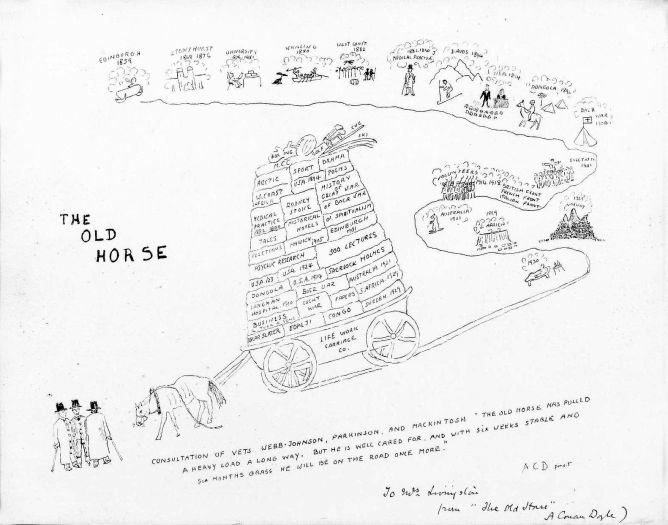 EDINBURGH
1859
STONYHURST
1868 1875
UNIVERSITY
1876 1881
WHALING
1880
WEST COAST
1882
1882 1890
MEDICAL PRACTICE
DAVOS 1894
U.S.A. 1894
DONGOLA
BOER
WAR
1900
VOLUNTEERS
1914 1918
BRITISH FRONT
FRENCH FRONT
ITALIAN FRONT
AUSTRALIA
1921
AFRICA
1930
THE
OLD
HORSE
SKI
ARCTIC
SPORT
DRAMA
W. COAST
AFRICA
U.S.A. 1894
POEMS
MEDICAL
PRACTICE
RODNEY
STONE
HISTORY
GREAT WAR
OF BOER WAR
TALES
HISTORICAL
NOVELS
OF SPIRITUALISM
ELECTIONS
EDINBURGH
PSYCHIC RESEARCH
300 LECTURES
U.S.A. 1923
U.S.A. 1914
SHERLOCK HOLMES
DONGOLA
BOER WAR
AUSTRALIA 1921
LANGMAN
HOSPITAL 1900
GREAT
WAR
PAPERS
S. AFRICA 1929
BUSINESS
OSCAR SLATER
EDALJI
CONGO
SWEDEN 1929
LIFE WORK
CARRIAGE
CO.
CONSULTATION OF VETS WEBB-JOHNSON, PARKINSON, AND MACKINTOSH "THE OLD HORSE HAS PULLED
A HEAVY LOAD A LONG WAY. BUT HE IS WELL CARED FOR. AND WITH SIX WEEKS STABLE AND
SIX MONTHS GRASS HE WILL BE ON THE ROAD ONCE MORE."
A C D
To Mrs Livingston
from "The Old Horse"
A Conan Doyle)